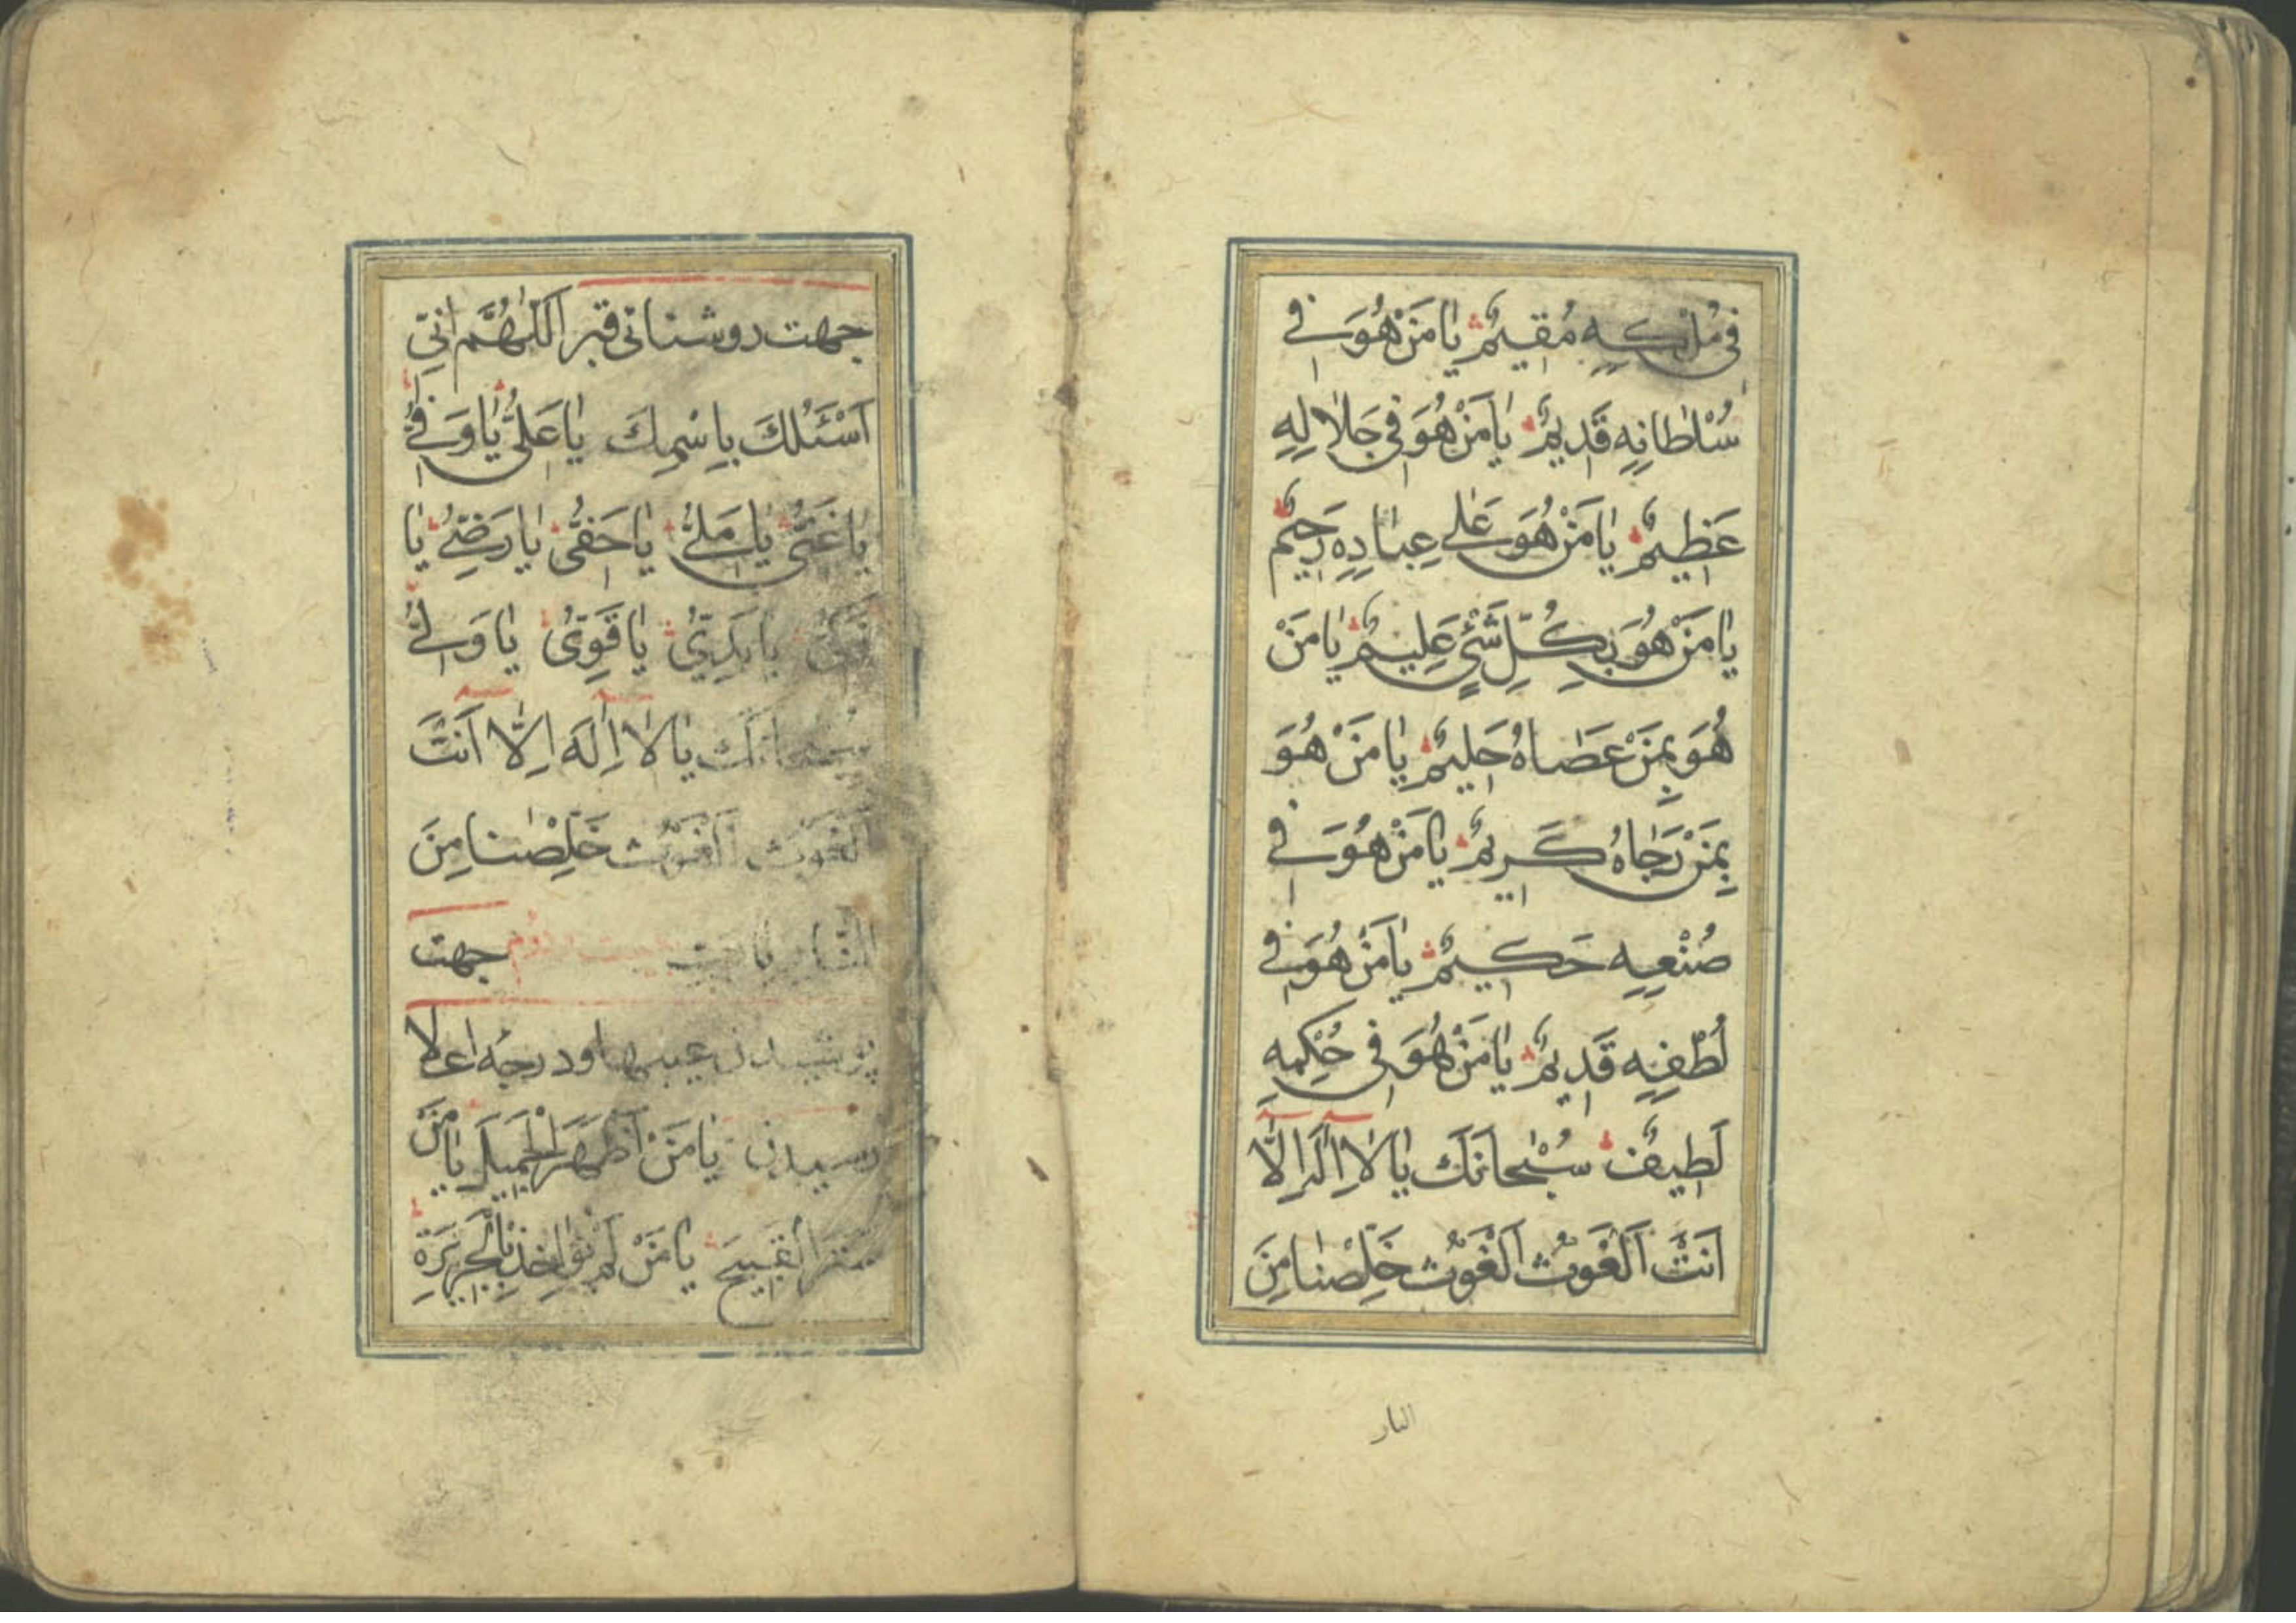 فِي مُلْكِهِ مُقيمٌ يا مَنْ هُوَ في
سُلْطانِهِ قَديمٌ يا مَنْ هُوَ في جَلالِهِ
عَظيمٌ يا مَنْ هُوَ عَلى عِبادِهِ رَحيمٌ
يا مَنْ هُوَ بِكُلِّ شَيْءٍ عَليمٌ يا مَنْ
هُوَ بِمَنْ عَصاهُ حَليمٌ يا مَنْ هُوَ
بِمَنْ رَجاهُ كَريمٌ يا مَنْ هُوَ في
صُنْعِهِ حَكيمٌ يا مَنْ هُوَ في
لُطْفِهِ قَديمٌ يا مَنْ هُوَ في حُكْمِهِ
لَطيفٌ سُبْحانَكَ يا لا اِلهَ اِلّا
اَنْتَ اَلْغَوْثَ اَلْغَوْثَ خَلِّصْنا مِنَ
النار
جهت روشنائی قبر اَللّهُمَّ اِنّي
اَسْئَلُكَ بِاسْمِكَ يا عَلِيُّ يا وَفِيُّ
يا غَنِيُّ يا مَلِيُّ يا حَفِيُّ يا رَضِيُّ يا
زَكِيُّ يا بَدِيُّ يا قَوِيُّ يا وَلِيُّ
سُبْحانَكَ يا لا اِلهَ اِلّا اَنْتَ
اَلْغَوْثَ اَلْغَوْثَ خَلِّصْنا مِنَ
النّارِ يا رَبِّ بیست و دوم جهت
پوشیدن عیبها و درجه اعلا
رسیدن يا مَنْ اَظْهَرَ الْجَميلَ يا مَنْ
سَتَرَ الْقَبيحَ يا مَنْ لَمْ يُؤاخِذْ بِالْجَريرَةِ